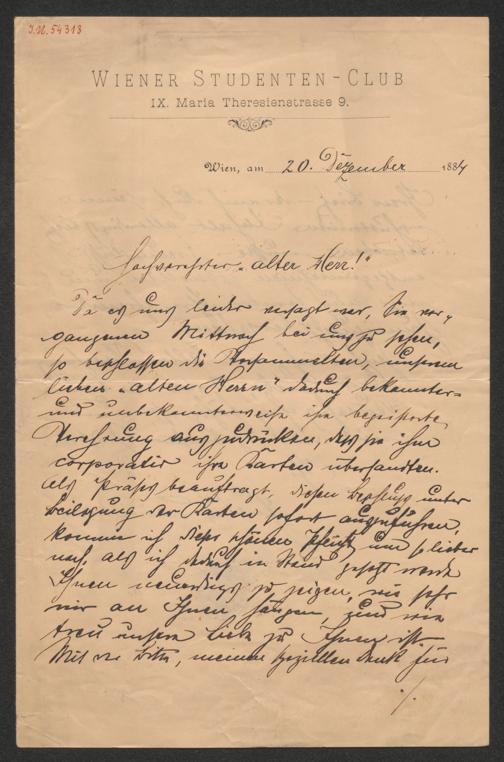 I.N. 54318
WIENER STUDENTEN-CLUB
IX. Maria Theresienstrasse 9.
Wien, am 20. Dezember 1884
Hochverehrter „alter Herr!"
Da es uns leider versagt war, Sie ver-
gangenen Mittwoch bei uns zu sehen,
so beschlossen die Versammelten, unserem
lieben „alten Herrn" dadurch bekannter-
und unbekannterweise ihre begeisterte
Verehrung auszudrücken, dass sie ihm
corporativ ihre Karten übersandten.
Als Präses beauftragt, diesen Beschluss unter
Beilegung der Karten sofort auszuführen,
komme ich dieser schönen Pflicht um so lieber
nach, als ich dadurch in Stand gesetzt werde
Ihnen neuerdings zu zeigen, wie sehr
wir an Ihnen hängen, und wie
treu unsere Liebe zu Ihnen ist.
Mit der Bitte, meinen speziellen Dank für
./.